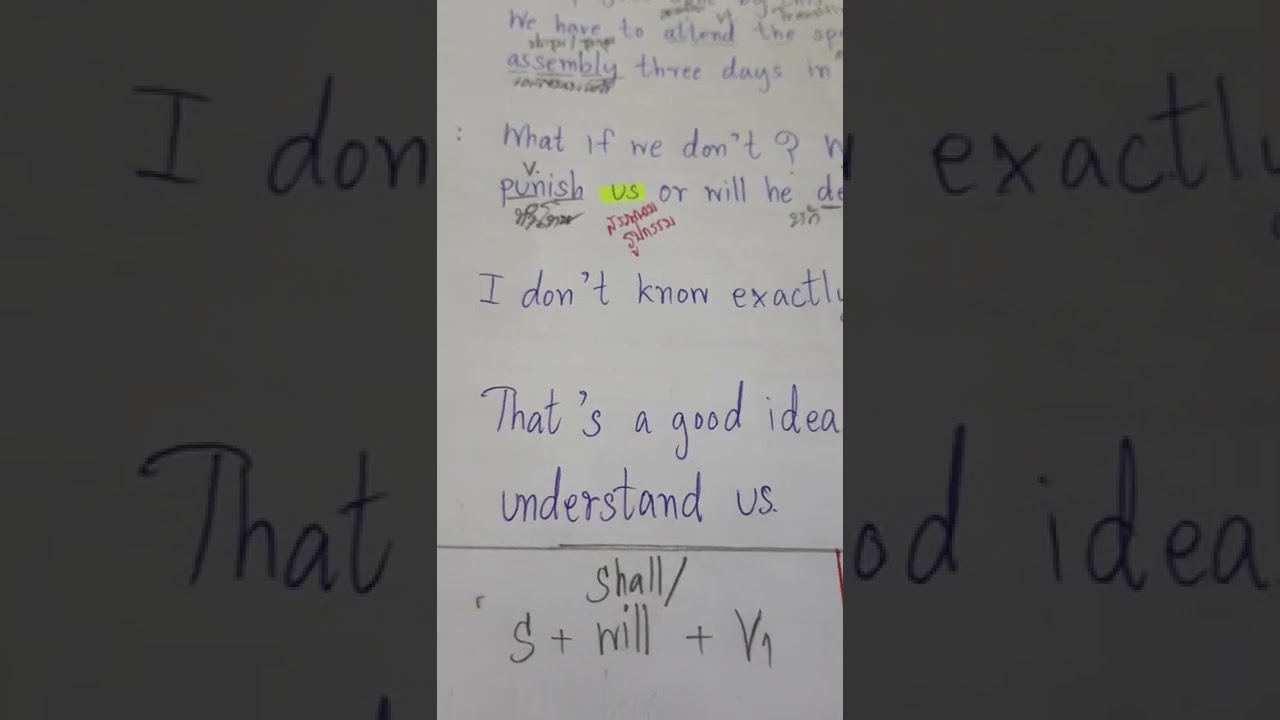 We have to attend the sp
assembly three days in
: What if we don't? W
V.
punish us or will he de
ทำโทษ สรรพนาม
รูปกรรม
I don't know exactly
That's a good idea
understand us.
Shall/
S + will + V1